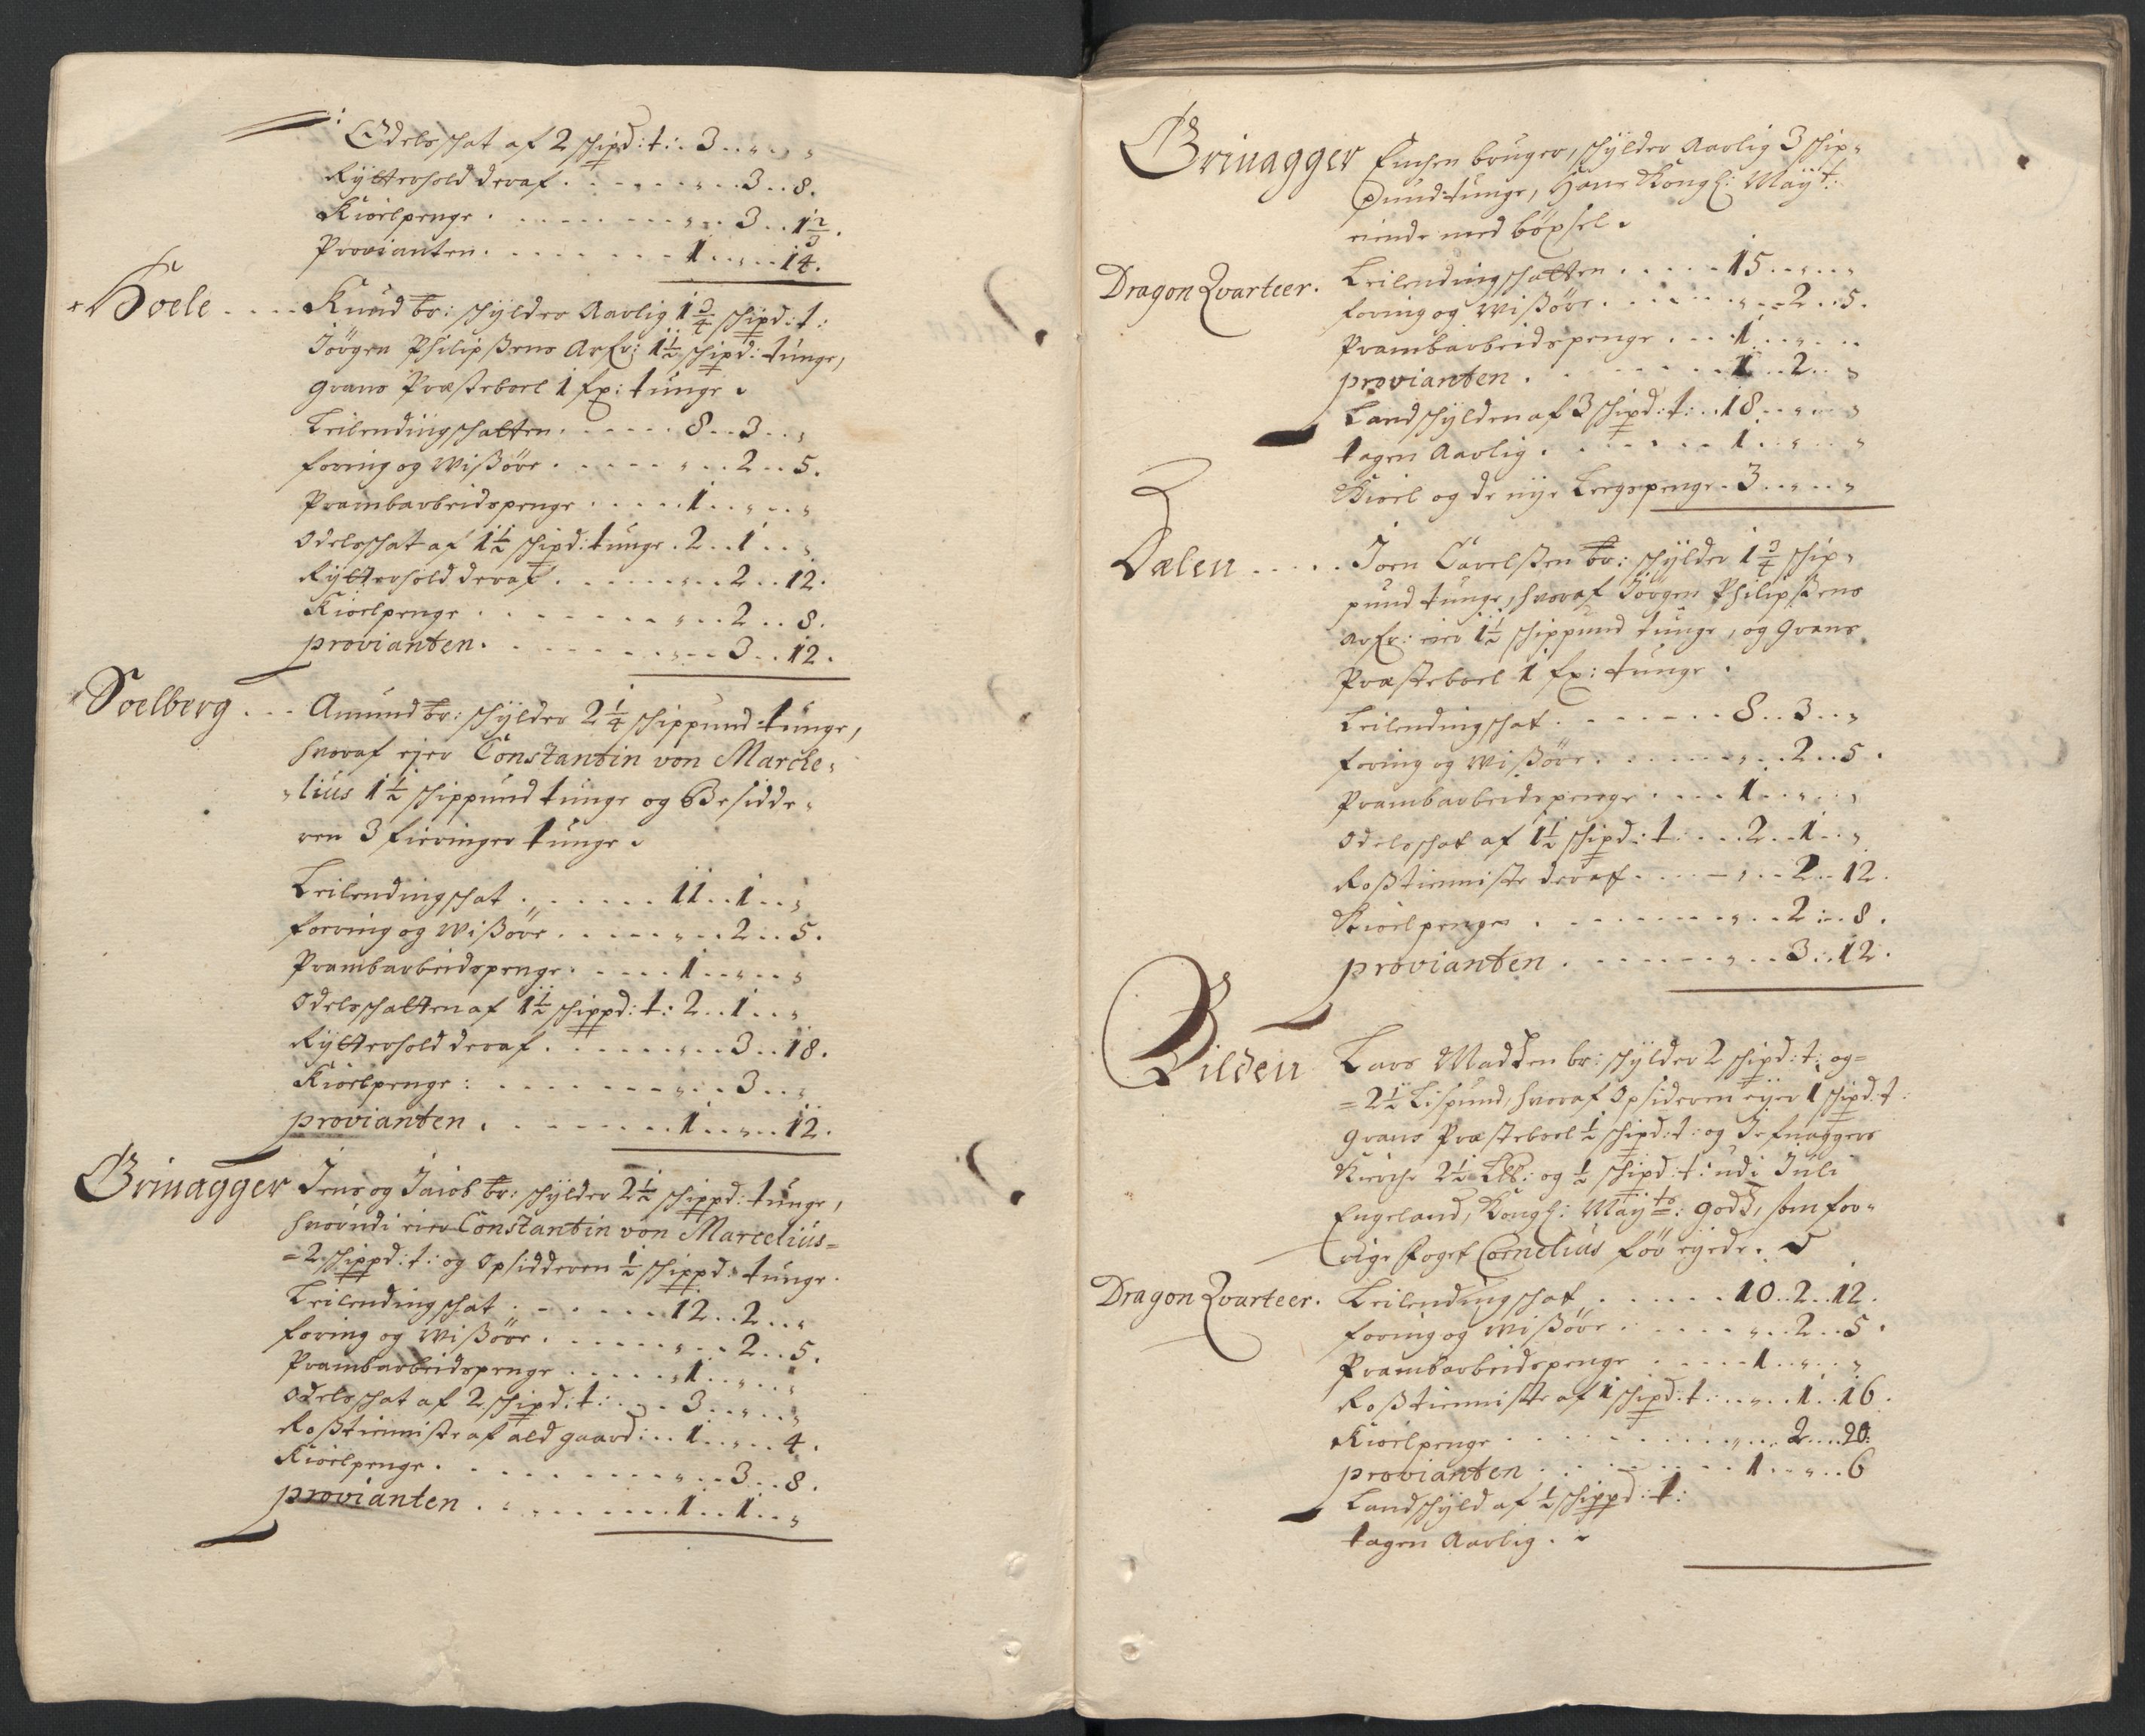 Odelsschat af 2 schipd: t: . 3 . . „ . . „
Rÿtterhold deraf . . . . . „ . . 3 . . 8 .
Kioelpenge . . . . . . „ . . 3 . . 1 2/3 .
Provianten . . . . . . 1 . . „ . . 14 .
Hoele . . . . Knud br: schÿlder Aarlig 1 3/4 schipd: t:
Jörgen Philipßens Arfv: 1 1/2 schipd: tunge,
Grans Præsteboel 1 fx: tunge .
Leilendingschatten . . . . . 8 . . 3 . . „
foring og Wißöre . . . . . „ . . 2 . . 5 .
Prambarbeidspenge . . . . . 1 . . „ . . „
Odelsschat af 1 1/2 schipd: tunge . 2 . . 1 . . „
Rÿtterhold deraf . . . . . „ . . 2 . . 12 .
Kioelpenge . . . . . . „ . . 2 . . 8 .
provianten . . . . . . „ . . 3 . . 12 .
Soelberg . . . Amund br: schÿlder 2 1/4 schippund tunge,
hvoraf ejer Constantin von Marcke„
„lius 1 1/2 schippund tunge og Besidde„
ren 3 fieringer tunge .
Leilendingschat . . . . . . 11 . . 1 . . „
forring og Wißöre . . . . . „ . . 2 . . 5 .
Prambarbeidspenge . . . . . 1 . . „ . . „
Odelsschatten af 1 1/2 schippd: t: 2 . . 1 . . „
Rÿtterhold deraf . . . . . „ . . 3 . . 18 .
Kioelpenge : . . . . . . „ . . 3 . . „
provianten . . . . . . . 1 . . „ . . 12 .
Grinagger Jens og Jacob br: schÿlder 2 1/2 schippd: tunge,
hvorudi eier Constantin von Marcelius=
=2 schippd: t: og Opsidderen 1/2 schippd: tunge .
Leilendingschat . . . . . . 12 . . 2 . . „
foring og Wißöre . . . . . „ . . 2 . . 5 .
Prambarbeidspenge . . . . . 1 . . „ . . „
Odelsschat af 2 schipd: t: . . . 3 . . „ . . „
Roßtienniste af ald gaard: . . 1 . . „ . . 4 .
Kioelpenge . . . . . . . „ . . 3 . . 8 .
provianten . . . . . . . 1 . . 1 . . „
Grinagger Enchen bruger, schÿlder Aarlig 3 schip„
pund tunge, Hans Kongl: Maÿt:
eiende med böxsel .
Dragon Qvarteer . Leilendingschatten . . . . 15 . . „ . . „
foring og Wißöre . . . . . „ . . 2 . . 5 .
Prambarbeidspenge . . . . 1 . . „ . . „
provianten . . . . . . 1 . . 2 . . „
Landschÿlden af 3 schipd: t: . . 18 . . „ . . „
tagen Aarlig . . . . . . 1 . . „ . . „
Kioel og de nÿe Leegspenge . 3 . . „ . . „
Dælen . . . . . Joen Carelsten br: schÿlder 1 3/4 schip„
pund tunge, hvoraf Jörgen Philipßens
Arfv: eier 1 1/2 schippund tunge, og Grans
Præsteboel 1 fx: tunge .
Leilendingschat . . . . . . 8 . . 3 . . „
foring og Wißöre . . . . . „ . . 2 . . 5 .
Prambarbeidspenge . . . . 1 . . „ . . „
Odelsschat af 1 1/2 schipd: t . . . 2 . . 1 . . „
Roßtienniste deraf . . . . „ . . 2 . . 12 .
Kioelpenge . . . . . . . „ . . 2 . . 8 .
provianten . . . . . . „ . . 3 . . 12 .
Bilden Lars Madsen br: schÿlder 2 schipd: t: og=
=2 1/2 Lispund, hvoraf Opsideren eijer 1 schipd: t:
Grans Præsteboel 1/2 schipd: t: og Jefnaggers
Kierche 2 1/2 L℔: og 1/2 schipd: t: udi Juli
Engeland, Kongl: Maÿts: Godz, som for„
rige Foget Cornelius för eijede .
Dragon Qvarteer . Leilendingschat . . . . . 10 . . 2 . . 12 .
foring og Wißöre . . . . . „ . . 2 . . 5 .
Prambarbeidspenge . . . . . 1 . . „ . . „
Roßtienniste af 1 schipd: t: . . „ . . 1 . . 16 .
Kioelpenge . . . . . . . „ . . 2 . . 20 .
provianten . . . . . . 1 . . „ . . 6
Landschÿld af 1/2 schippd: t:
tagen Aarlig .